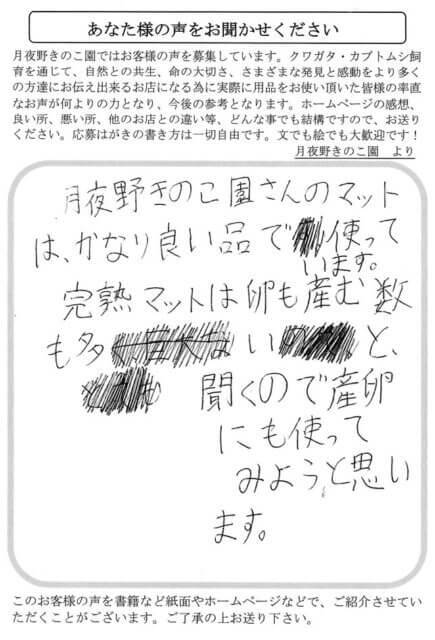 あなた様の声をお聞かせください
月夜野きのこ園ではお客様の声を募集しています。クワガタ・カブトムシ飼
育を通じて、自然との共生、命の大切さ、さまざまな発見と感動をより多く
の方達にお伝え出来るお店になる為に実際に用品をお使い頂いた皆様の率直
なお声が何よりの力となり、今後の参考となります。ホームページの感想、
良い所、悪い所、他のお店との違い等、どんな事でも結構ですので、お送り
ください。応募はがきの書き方は一切自由です。文でも絵でも大歓迎です！
月夜野きのこ園　より
月夜野きのこ園さんのマット
は、かなり良い品で使って
います。
完熟マットは卵も産む数
も多いと、
聞くので産卵
にも使って
みようと思い
ます。
このお客様の声を書籍など紙面やホームページなどで、ご紹介させてい
ただくことがございます。ご了承の上お送り下さい。